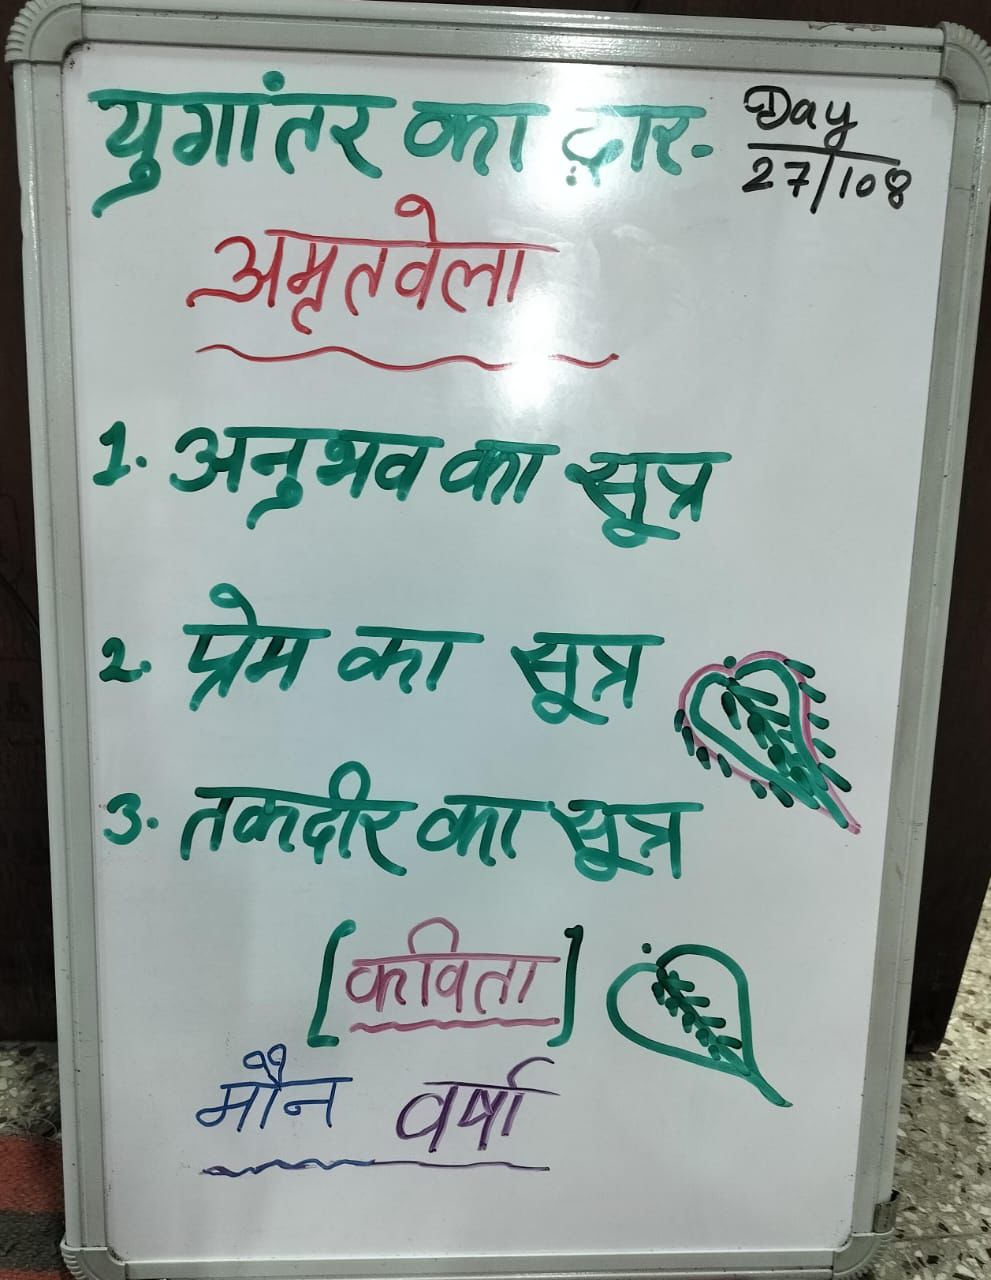 युगांतर का द्वार-
Day
27/108
अमृतवेला
1. अनुभव का सूत्र
2. प्रेम का सूत्र
3. तकदीर का सूत्र
[कविता]
मौन वर्षा